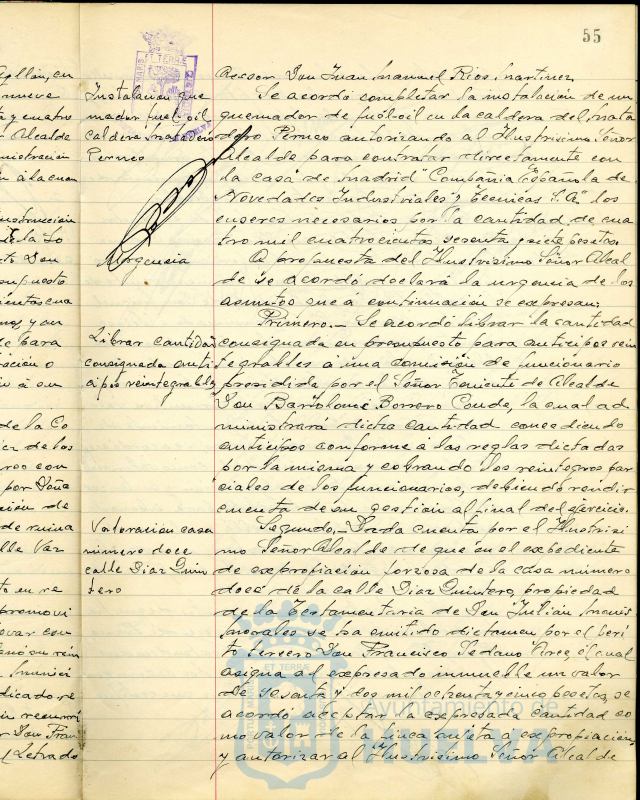 55
Asesor Don Juan Manuel Rios Martinez.
Se acordó completar la instalación de un
quemador de fuel-oil en la caldera del Mata
dero Perneo autorizando al Ilustrisimo Señor
Alcalde para contratar directamente con
la casa de Madrid "Compañia Española de
Novedades Industriales y Tecnicas S.A." los
enseres necesarios por la cantidad de cua
tro mil cuatrocientas sesenta y siete pesetas.
A propuesta del Ilustrisimo Señor Alcal
de se acordó declara la urgencia de los
asuntos que a continuación se expresan:
Primero.- Se acordó librar la cantidad
consignada en presupuesto para anticipos rein
tegrables á una comisión de funcionario
presidida por el Señor Teniente de Alcalde
Don Bartolomé Borrero Conde, la cual ad
ministrará dicha cantidad concediendo
anticipos conforme á las reglas dictadas
por la misma y cobrando los reintegros par
ciales de los funcionarios, debiendo rendir
cuenta de su gestión al final del ejercicio.
Segundo.- Dada cuenta por el Ilustrisi
mo Señor Alcalde de que en el expediente
de expropiación forzosa de la casa número
doce de la calle Diaz Quintero, propiedad
de la Testamentaria de Don Julián
Morales se ha emitido dictamen por el Peri
to tercero Don Francisco Sedano Arce, el cual
asigna al expresado inmueble un valor
de sesenta y dos mil ochenta y cinco pesetas, se
acordó aceptar la expresada cantidad co
mo valor de la finca sujeta a expropiación,
y autorizar al Ilustrisimo Señor Alcalde
Instalación que
mador fuel-oil
caldera Matadero
Perneo
Urgencia
Librar cantidad
consignada anti
cipos reintegrables
Valoracion casa
número doce
calle Diaz Quin
tero
nueve
y cuatro
Alcalde
ministración
á la cuan
Don
para
de la Co
de los
con
por Doña
de ruina
lle Vaz
to en re
promovi
dicado re
Don Fran
Letrado
Ayuntamiento de
HUELVA